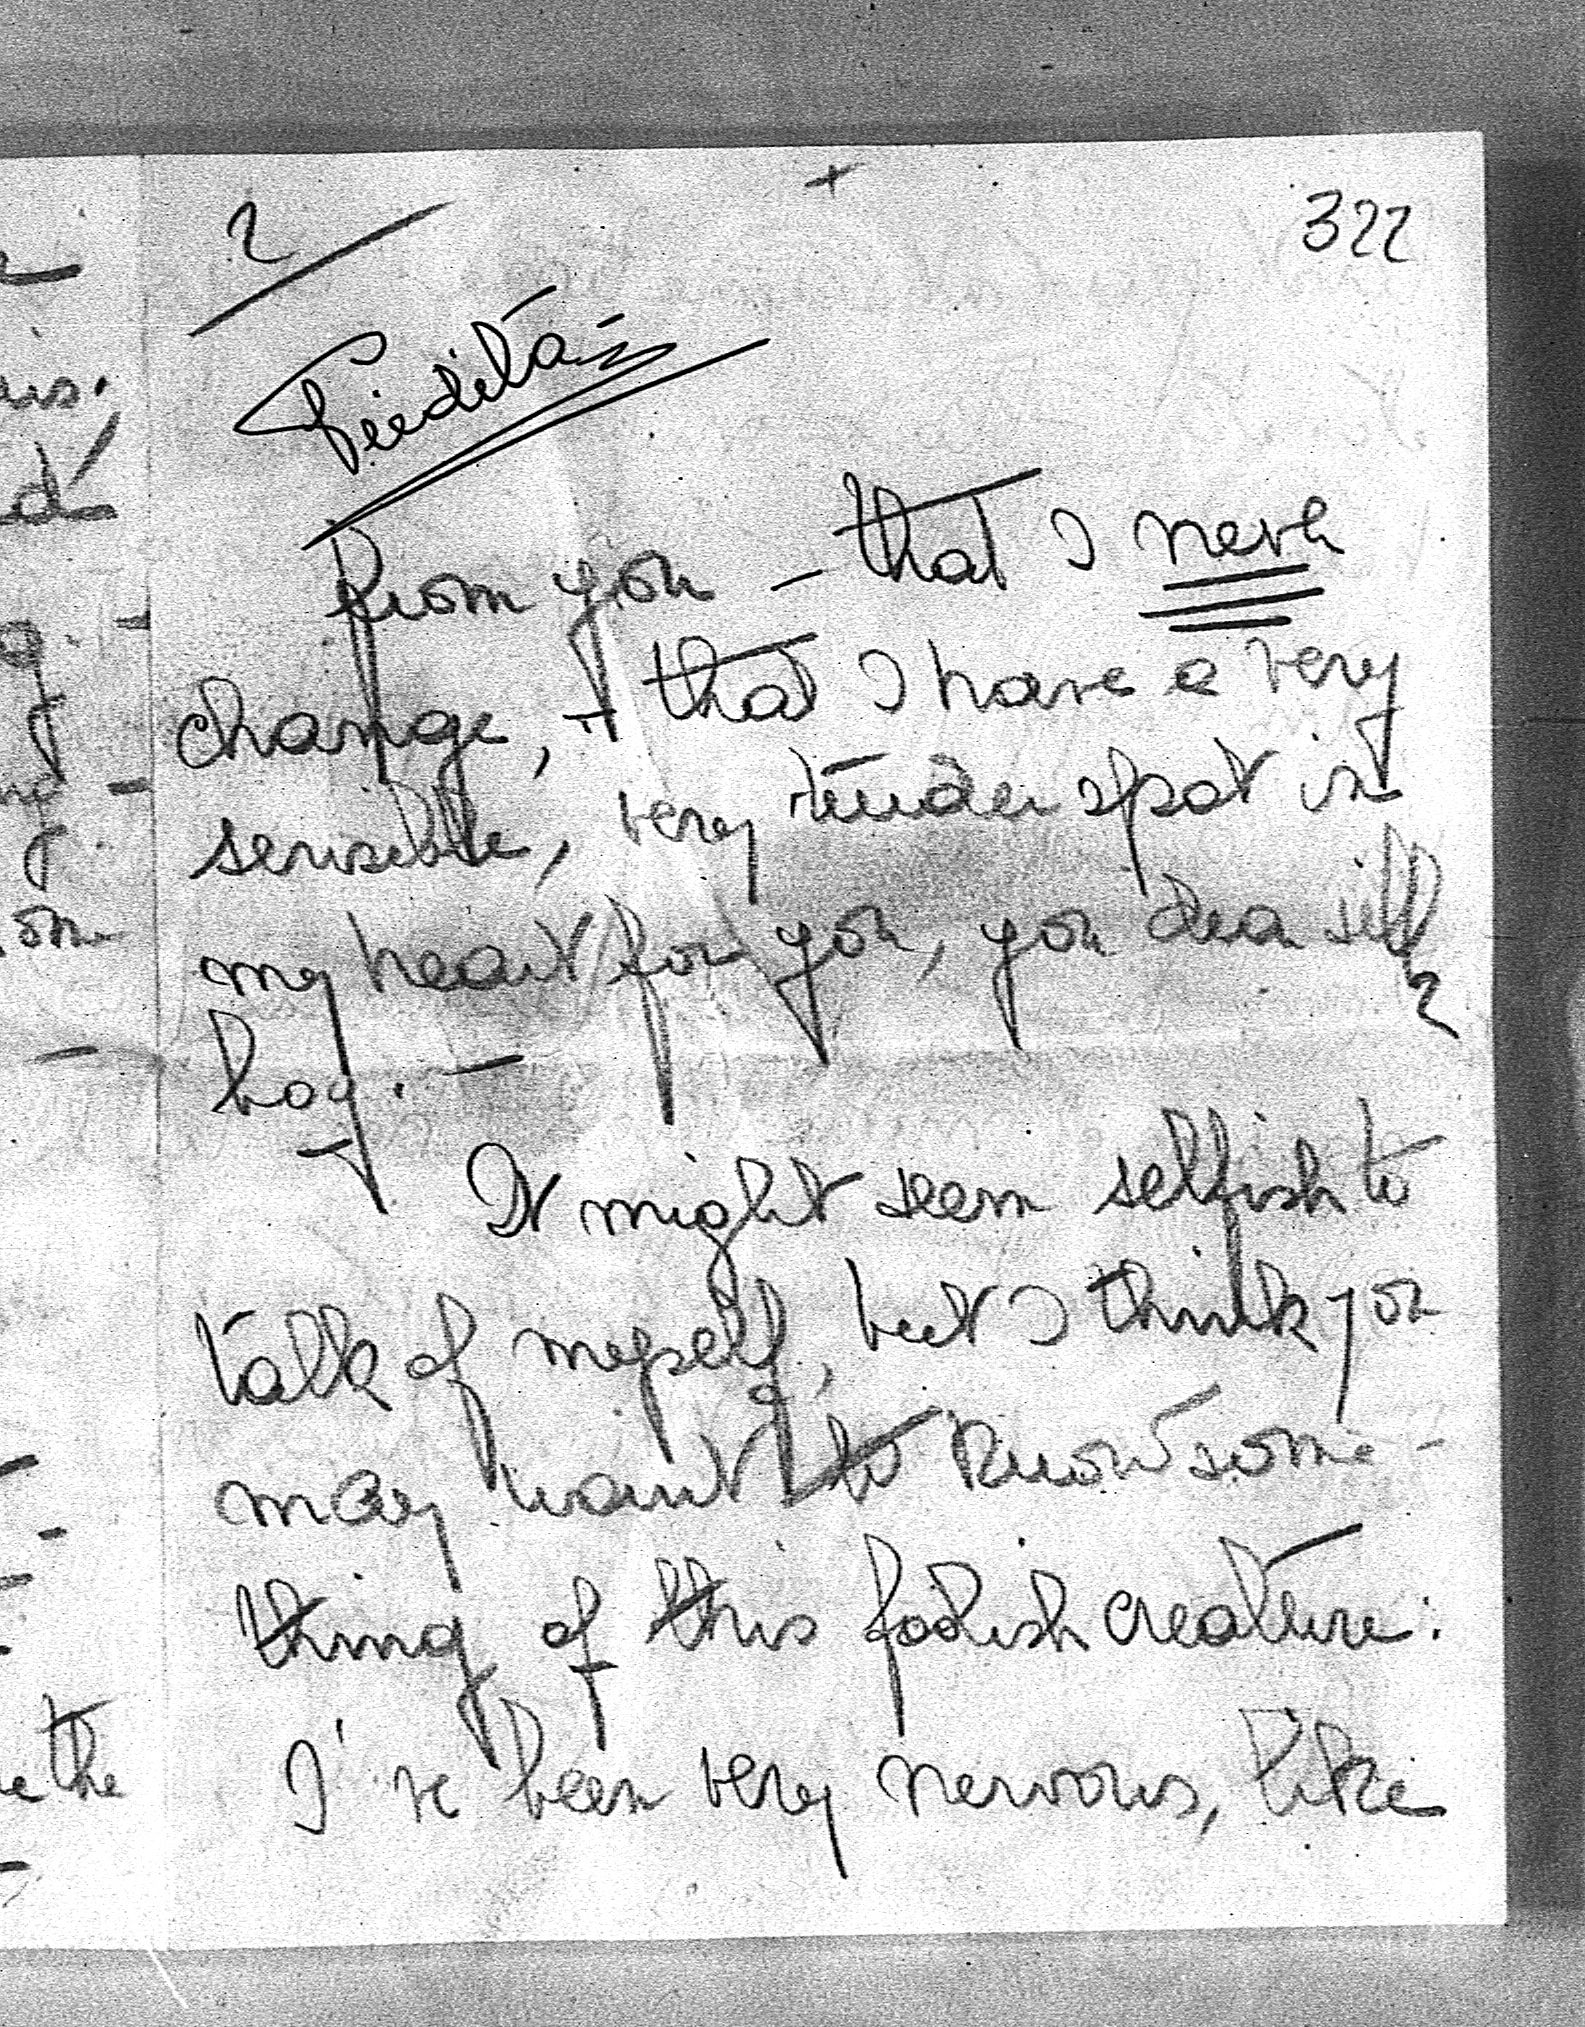 2
322
from you - that I never
change, + that I have a very
sensible, very tender spot in
my heart for you, you dear silly
boy. -
It might seem selfish to
talk of myself, but I think you
may want to know some-
thing of this foolish creature:
I've been very nervous, like